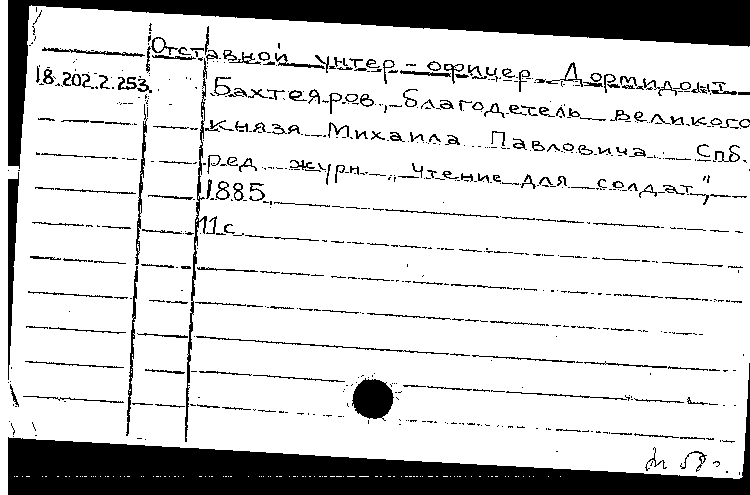 Отставной унтер-офицер Дормидонт
18.202.2.253
Бахтеяров, благодетель великого
князя Михаила Павловича. Спб.,
ред. журн. "Чтение для солдат",
1885.
11 с.